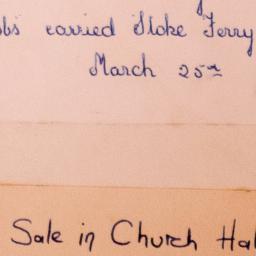 carried Stoke Ferry
March 25th
Sale in Church Hal